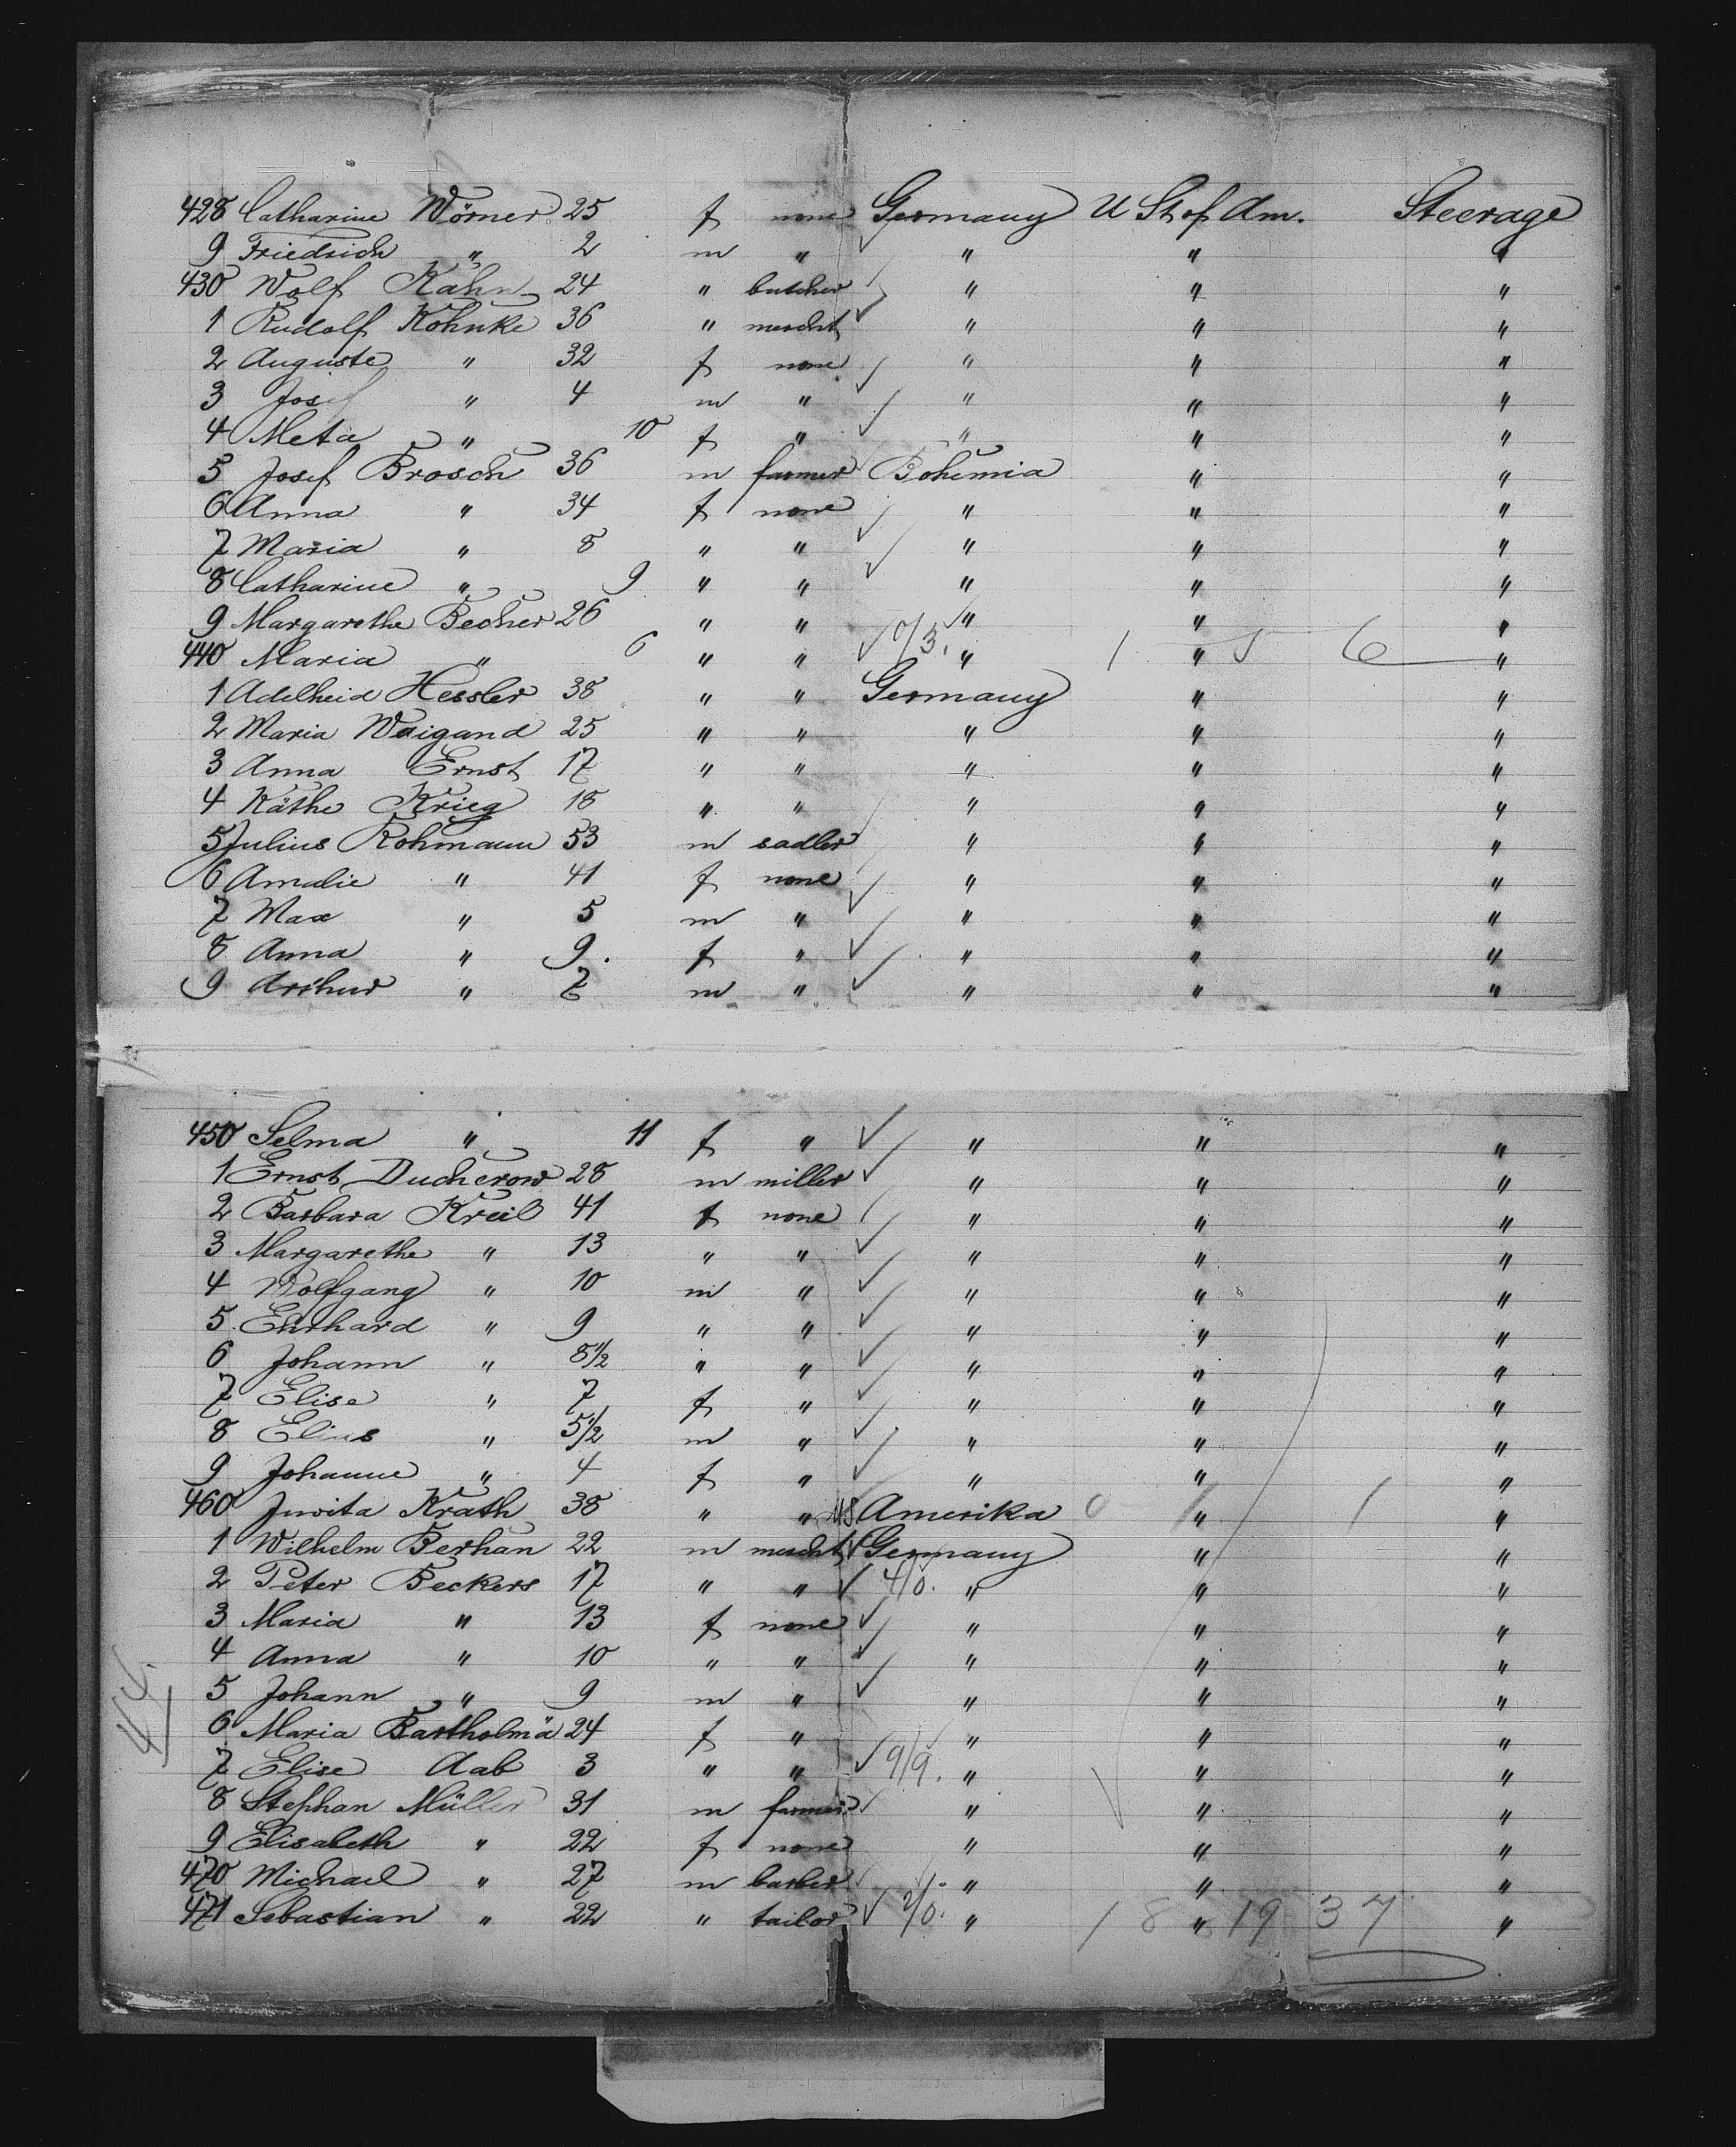 428 Catharine Wörner 25 f none Germany U St of Am. Steerage
9 Friedrich " 2 m " " " "
430 Wolf Kahn 24 " butcher " " "
1 Rudolf Kohnke 36 " mercht " " "
2 Auguste " 32 f none " " "
3 Josef " 4 m " " " "
4 Meta " 10 f " " " "
5 Josef Brosch 36 m farmer Bohemia " "
6 Anna " 34 f none " " "
7 Maria " 8 " " " " "
8 Catharine " 9 " " " " "
9 Margarethe Becher 26 " " " " "
440 Maria " 6 " " 0/3. " 1 " 5 6 "
1 Adelheid Hessler 38 " " Germany " "
2 Maria Waigand 25 " " " " "
3 Anna Ernst 17 " " " " "
4 Käthe Krieg 18 " " " " "
5 Julius Rohmann 53 m sadler " " "
6 Amalie " 41 f none " " "
7 Max " 5 m " " " "
8 Anna " 9. f " " " "
9 Arthur " 7 m " " " "
450 Selma " 11 f " " " "
1 Ernst Ducherow 28 m miller " " "
2 Barbara Kreil 41 f none " " "
3 Margarethe " 13 " " " " "
4 Wolfgang " 10 m " " " "
5 Ehrhard " 9 " " " " "
6 Johann " 8 1/2 " " " " "
7 Elise " 7 f " " " "
8 Elius " 5 1/2 m " " " "
9 Johanne " 4 f " " " "
460 Juvita Krath 38 " " US Amerika 0 1 " 1 "
1 Wilhelm Berhan 22 m mercht Germany " "
2 Peter Beckers 17 " " 4/0. " " "
3 Maria " 13 f none " " "
4 Anna " 10 " " " " "
5 Johann " 9 m " " " "
6 Maria Bartholmä 24 f " " " "
7 Elise Aab 3 " " 9/9. " " "
8 Stephan Müller 31 m farmer " " "
9 Elisabeth " 22 f none " " "
470 Michael " 27 m barber " " "
471 Sebastian " 22 " tailor 2/0. " 1 8 " 19 37 "
44.